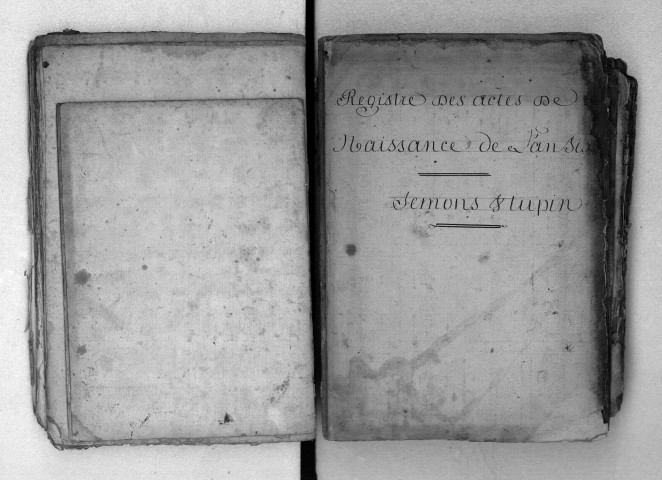 Registre des actes de
Naissance de L'an Six
Semons & tupin